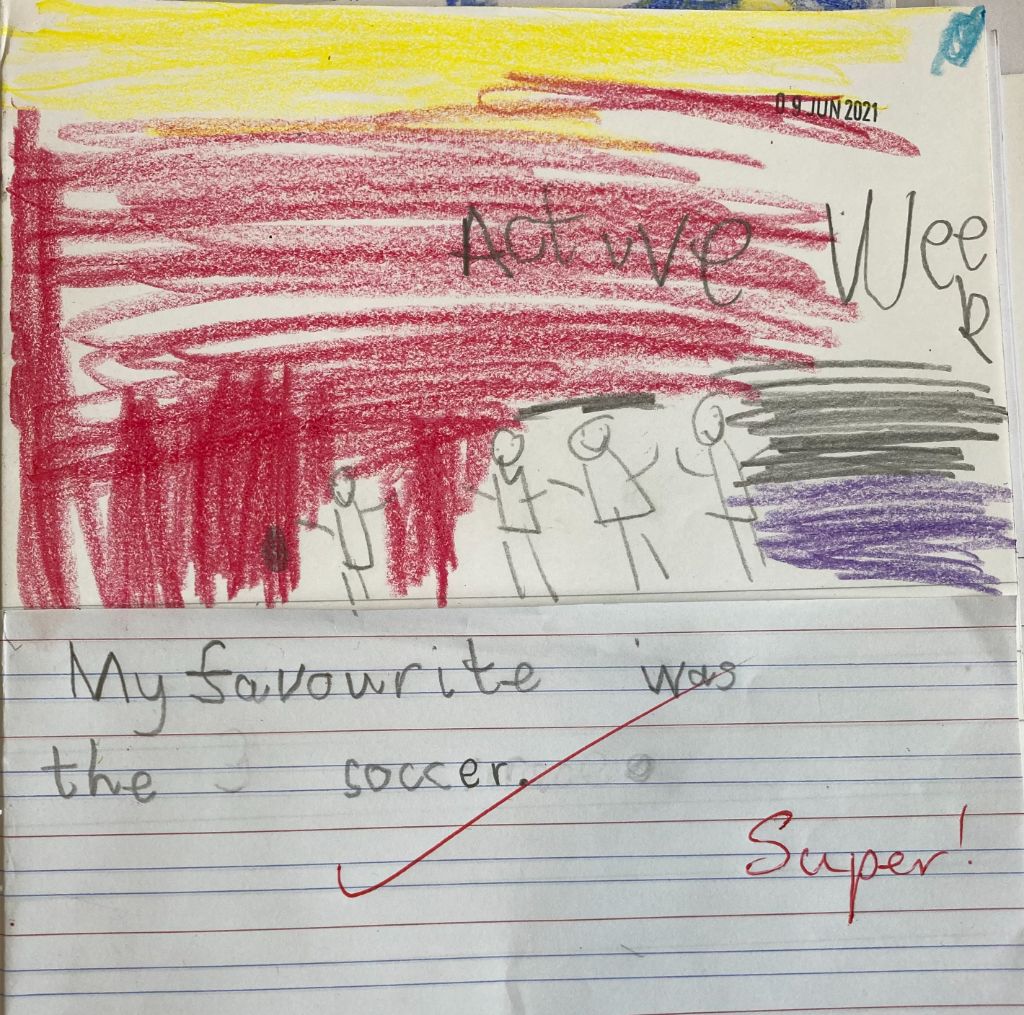 09 JUN 2021
Active Wee
k
My favourite was
the soccer.
Super!